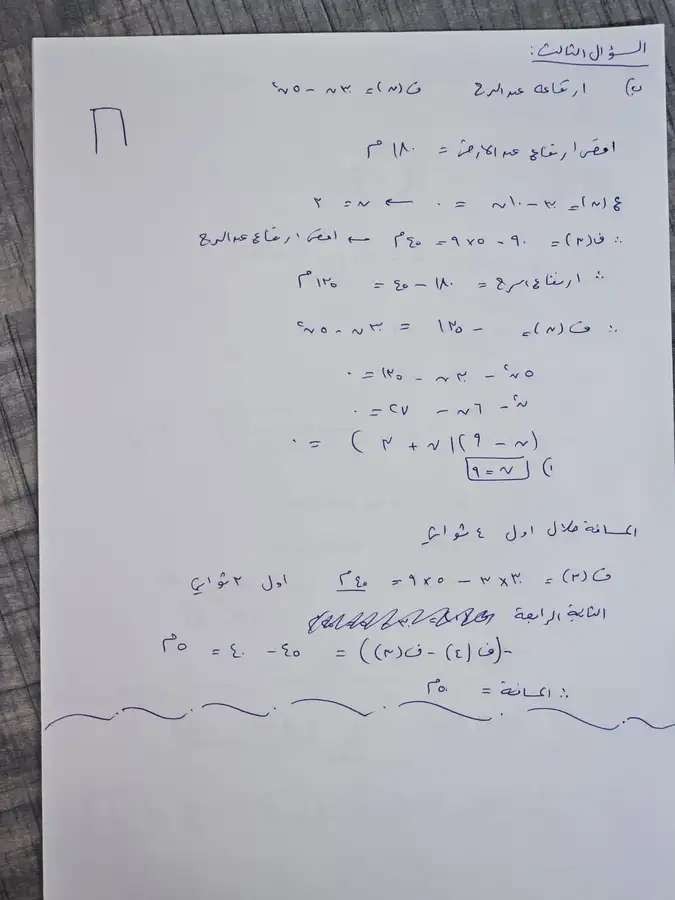 السؤال الثالث:
ب) ارتفاعه عن البرج ف(ن) = ٣٠ن - ٥ن²
اقصى ارتفاع عن الأرض = ١٨٠ م
ع(ن) = ٣٠ - ١٠ن = ٠ ← ن = ٣
∴ ف(٣) = ٩٠ - ٥×٩ = ٤٥م ← اقصى ارتفاع عن البرج
∴ ارتفاع البرج = ١٨٠ - ٤٥ = ١٣٥م
∴ ف(ن) = - ١٣٥ = ٣٠ن - ٥ن²
٥ن² - ٣٠ن - ١٣٥ = ٠
ن² - ٦ن - ٢٧ = ٠
(ن - ٩)(ن + ٣) = ٠
١) ن = ٩
المسافة خلال اول ٤ ثواني
ف(٣) = ٣٠×٣ - ٥×٩ = ٤٥م اول ٣ ثواني
الثانية الرابعة
-(ف(٤) - ف(٣)) = ٤٥ - ٤٠ = ٥م
∴ المسافة = ٥٠م